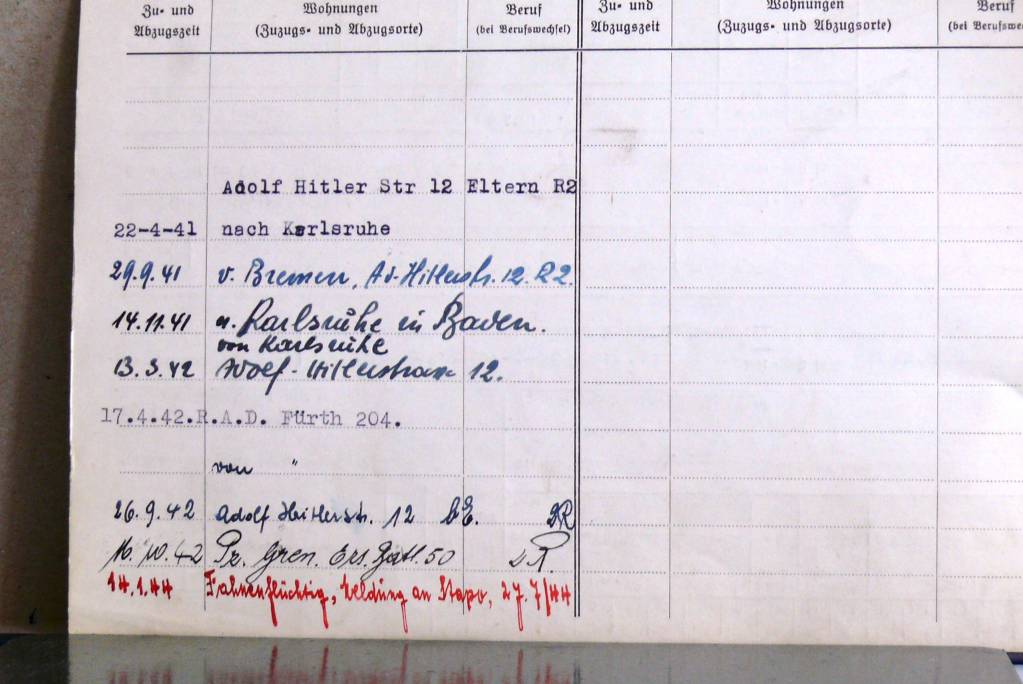 Zu- und
Abzugszeit
Wohnungen
(Zuzugs- und Abzugsorte)
Beruf
(bei Berufswechsel)
Zu- und
Abzugszeit
Wohnungen
(Zuzugs- und Abzugsorte)
Beruf
(bei Berufswe
Adolf Hitler Str 12 Eltern R2
22-4-41 nach Karlsruhe
29.9.41 v. Bremen, Ad. Hitlerstr. 12. R2.
14.11.41 n. Karlsruhe in Baden.
von Karlsruhe
13.3.42 Adolf-Hitlerstrasse 12.
17.4.42.R.A.D. Fürth 204.
von "
26.9.42 Adolf Hitlerstr. 12 b.E.
16.10.42 Pz. Gren. Ers. Batl. 50
14.1.44 Fahnenflüchtig, Meldung an Stapo, 27.7/44